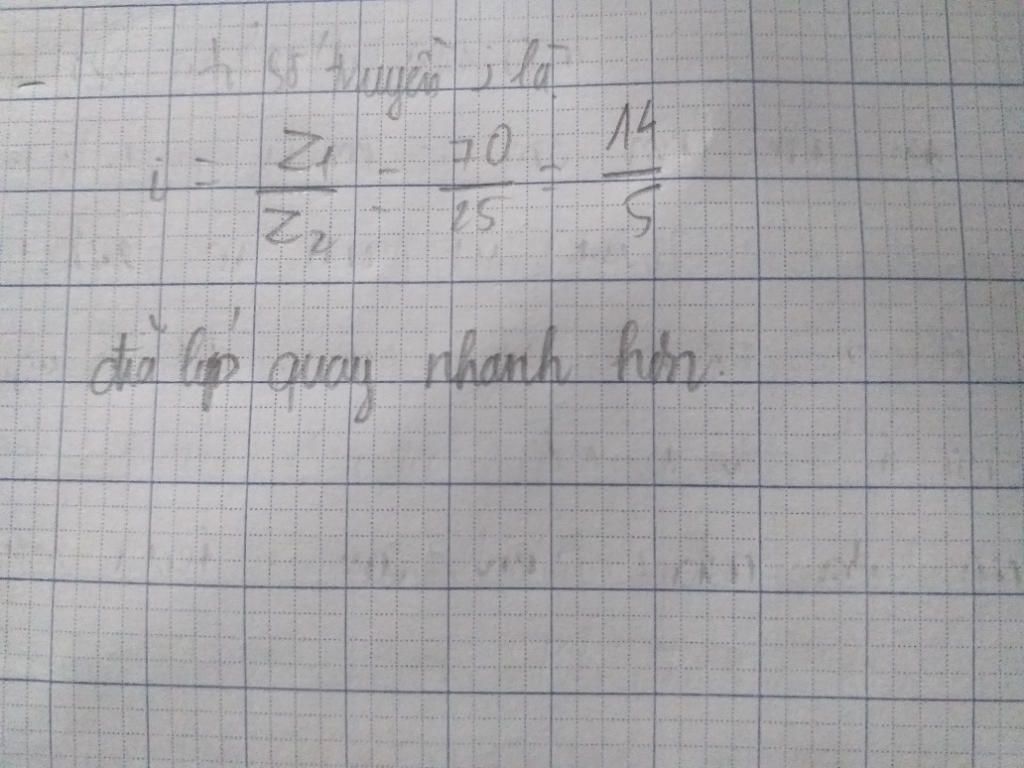 - tỉ số truyền i là
i = Z1/Z2 = 70/25 = 14/5
đĩa líp quay nhanh hơn.